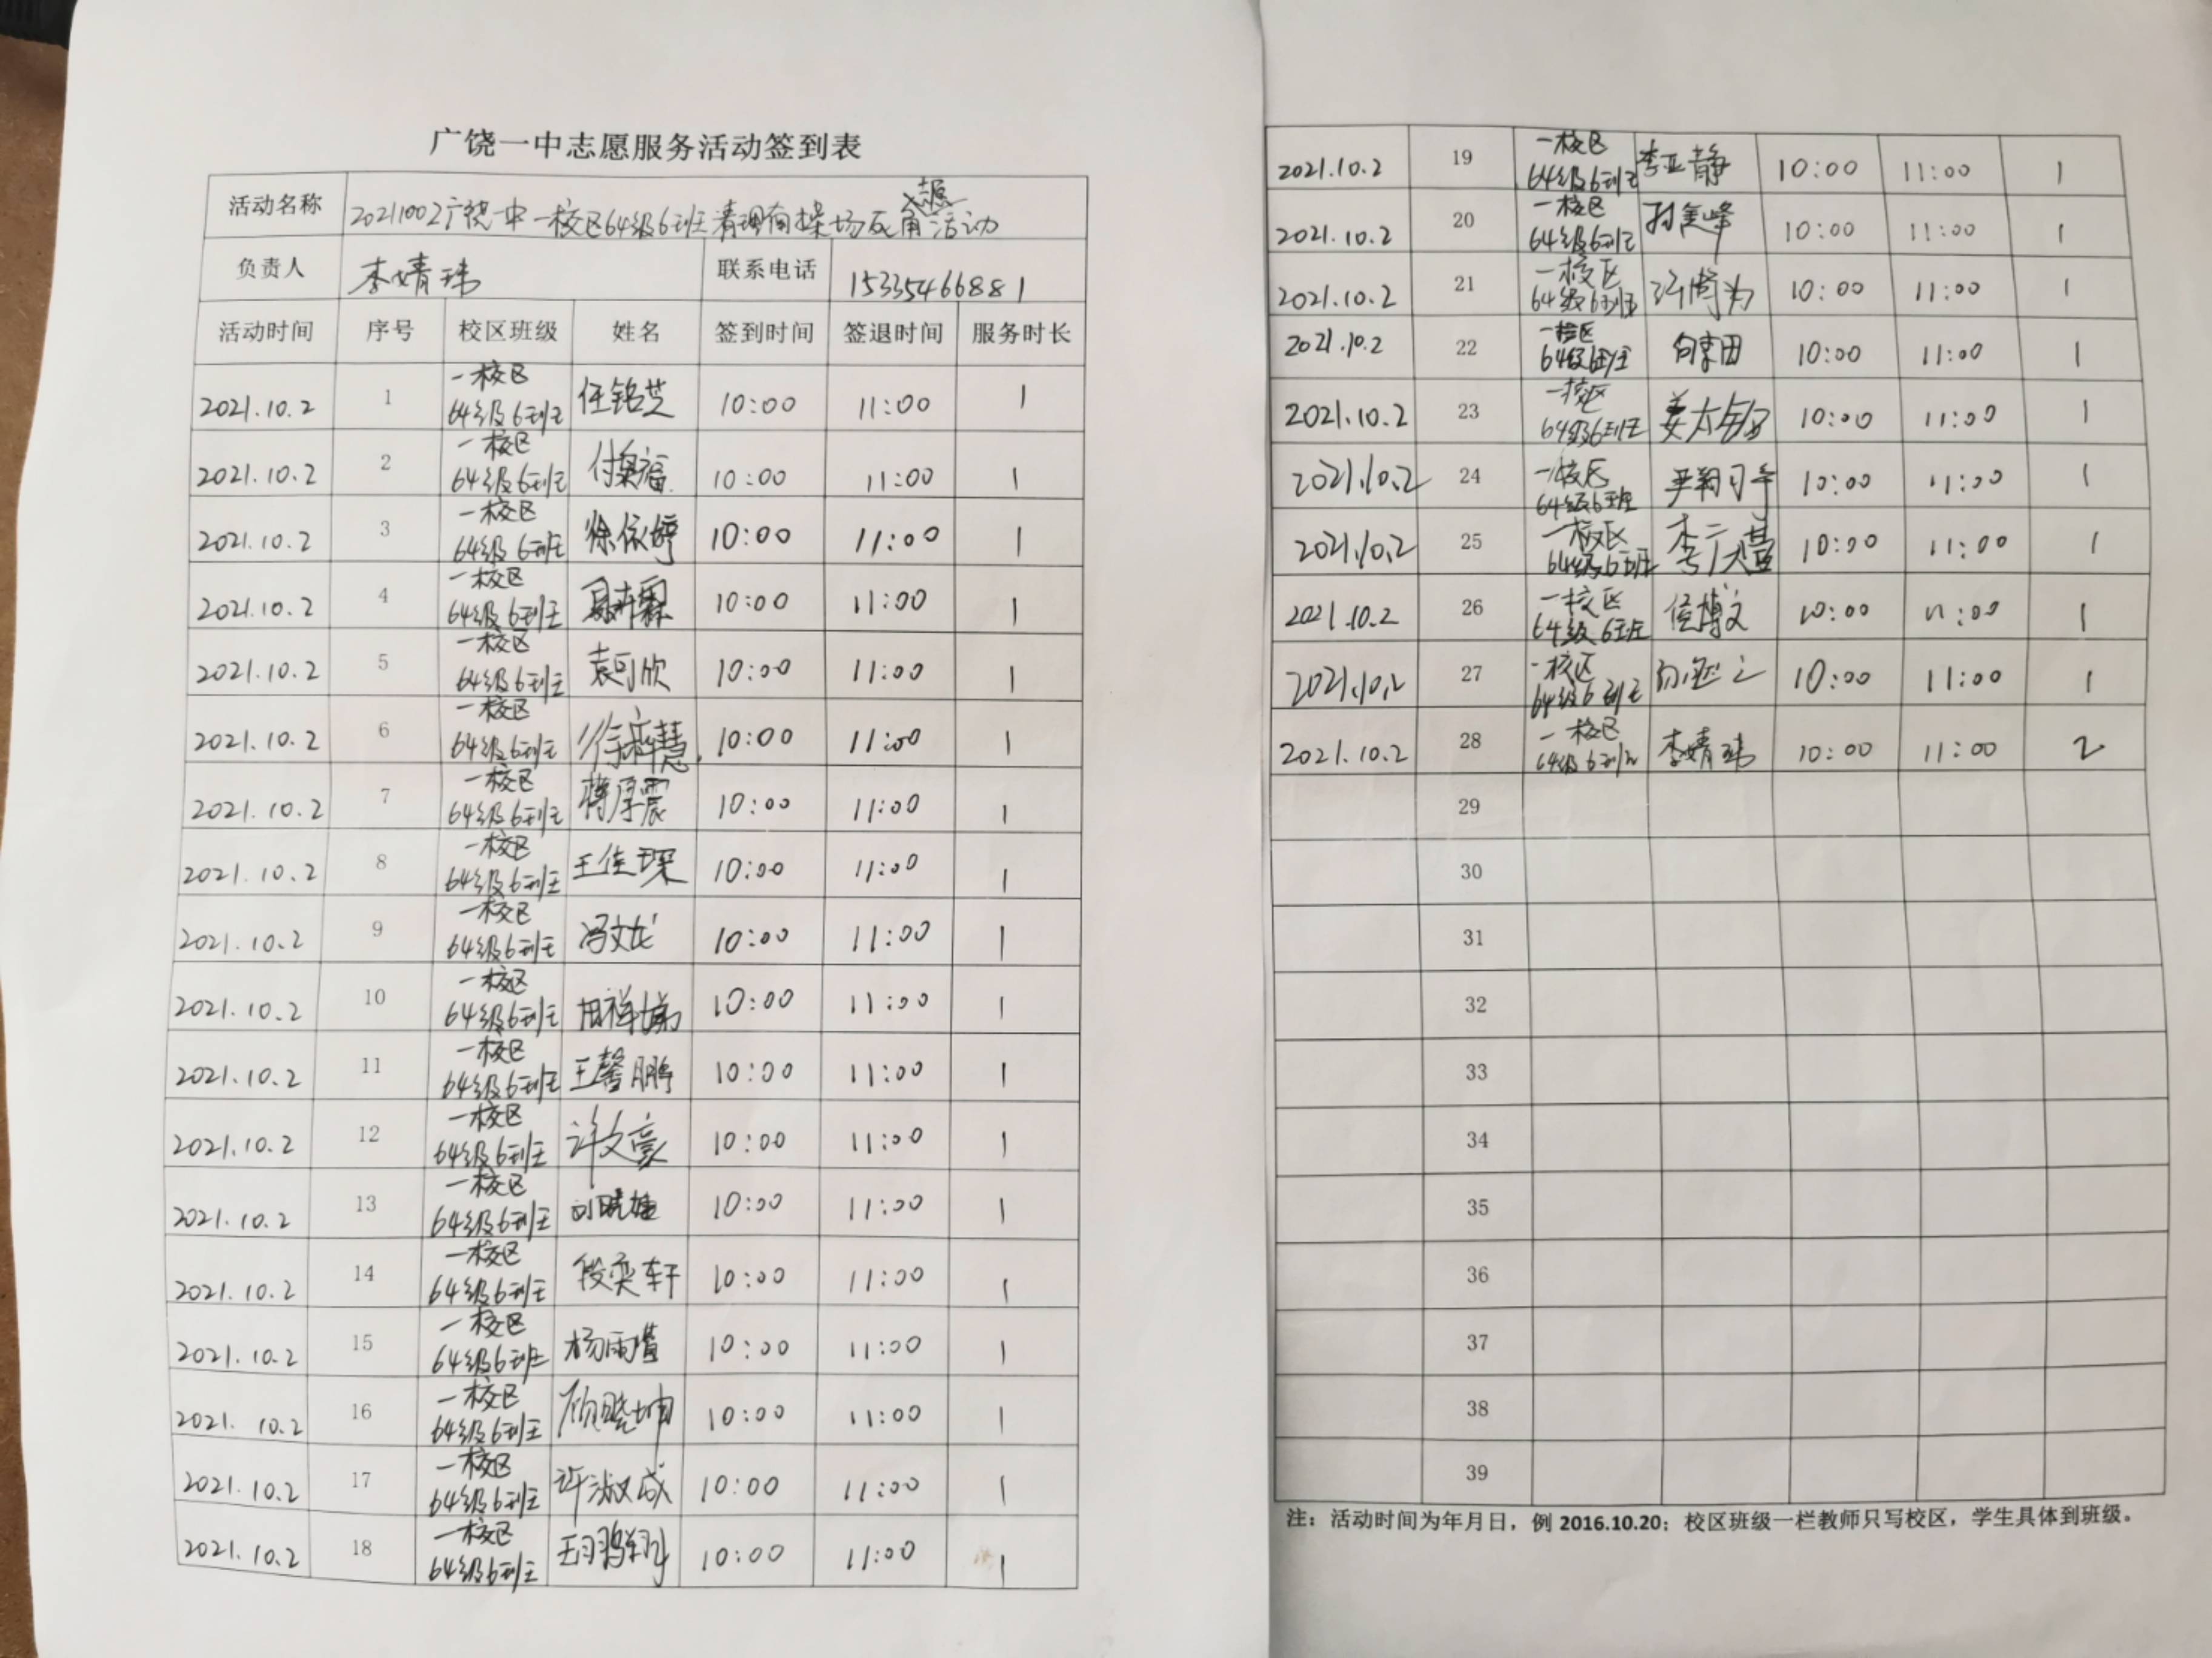 广饶一中志愿服务活动签到表
活动名称 20211002广饶一中一校区64级6班清理南操场死角志愿活动
负责人 李婧玮 联系电话 15335466881
活动时间 序号 校区班级 姓名 签到时间 签退时间 服务时长
2021.10.2 1 一校区 64级6班 任铭芝 10:00 11:00 1
2021.10.2 2 一校区 64级6班 10:00 11:00 1
2021.10.2 3 一校区 64级6班 徐依婷 10:00 11:00 1
2021.10.2 4 一校区 64级6班 10:00 11:00 1
2021.10.2 5 一校区 64级6班 袁可欣 10:00 11:00 1
2021.10.2 6 一校区 64级6班 10:00 11:00 1
2021.10.2 7 一校区 64级6班 蒋厚震 10:00 11:00 1
2021.10.2 8 一校区 64级6班 王佳琛 10:00 11:00 1
2021.10.2 9 一校区 64级6班 冯文龙 10:00 11:00 1
2021.10.2 10 一校区 64级6班 10:00 11:00 1
2021.10.2 11 一校区 64级6班 王馨鹏 10:00 11:00 1
2021.10.2 12 一校区 64级6班 许文豪 10:00 11:00 1
2021.10.2 13 一校区 64级6班 10:00 11:00 1
2021.10.2 14 一校区 64级6班 段奕轩 10:00 11:00 1
2021.10.2 15 一校区 64级6班 10:00 11:00 1
2021.10.2 16 一校区 64级6班 顾晓坤 10:00 11:00 1
2021.10.2 17 一校区 64级6班 许淑成 10:00 11:00 1
2021.10.2 18 一校区 64级6班 10:00 11:00 1
2021.10.2 19 一校区 64级6班 李亚静 10:00 11:00 1
2021.10.2 20 一校区 64级6班 10:00 11:00 1
2021.10.2 21 一校区 64级6班 10:00 11:00 1
2021.10.2 22 一校区 64级6班 10:00 11:00 1
2021.10.2 23 一校区 64级6班 10:00 11:00 1
2021.10.2 24 一校区 64级6班 10:00 11:00 1
2021.10.2 25 一校区 64级6班 10:00 11:00 1
2021.10.2 26 一校区 64级6班 侯博文 10:00 11:00 1
2021.10.2 27 一校区 64级6班 10:00 11:00 1
2021.10.2 28 一校区 64级6班 李婧玮 10:00 11:00 2
29
30
31
32
33
34
35
36
37
38
39
注：活动时间为年月日，例 2016.10.20；校区班级一栏教师只写校区，学生具体到班级。